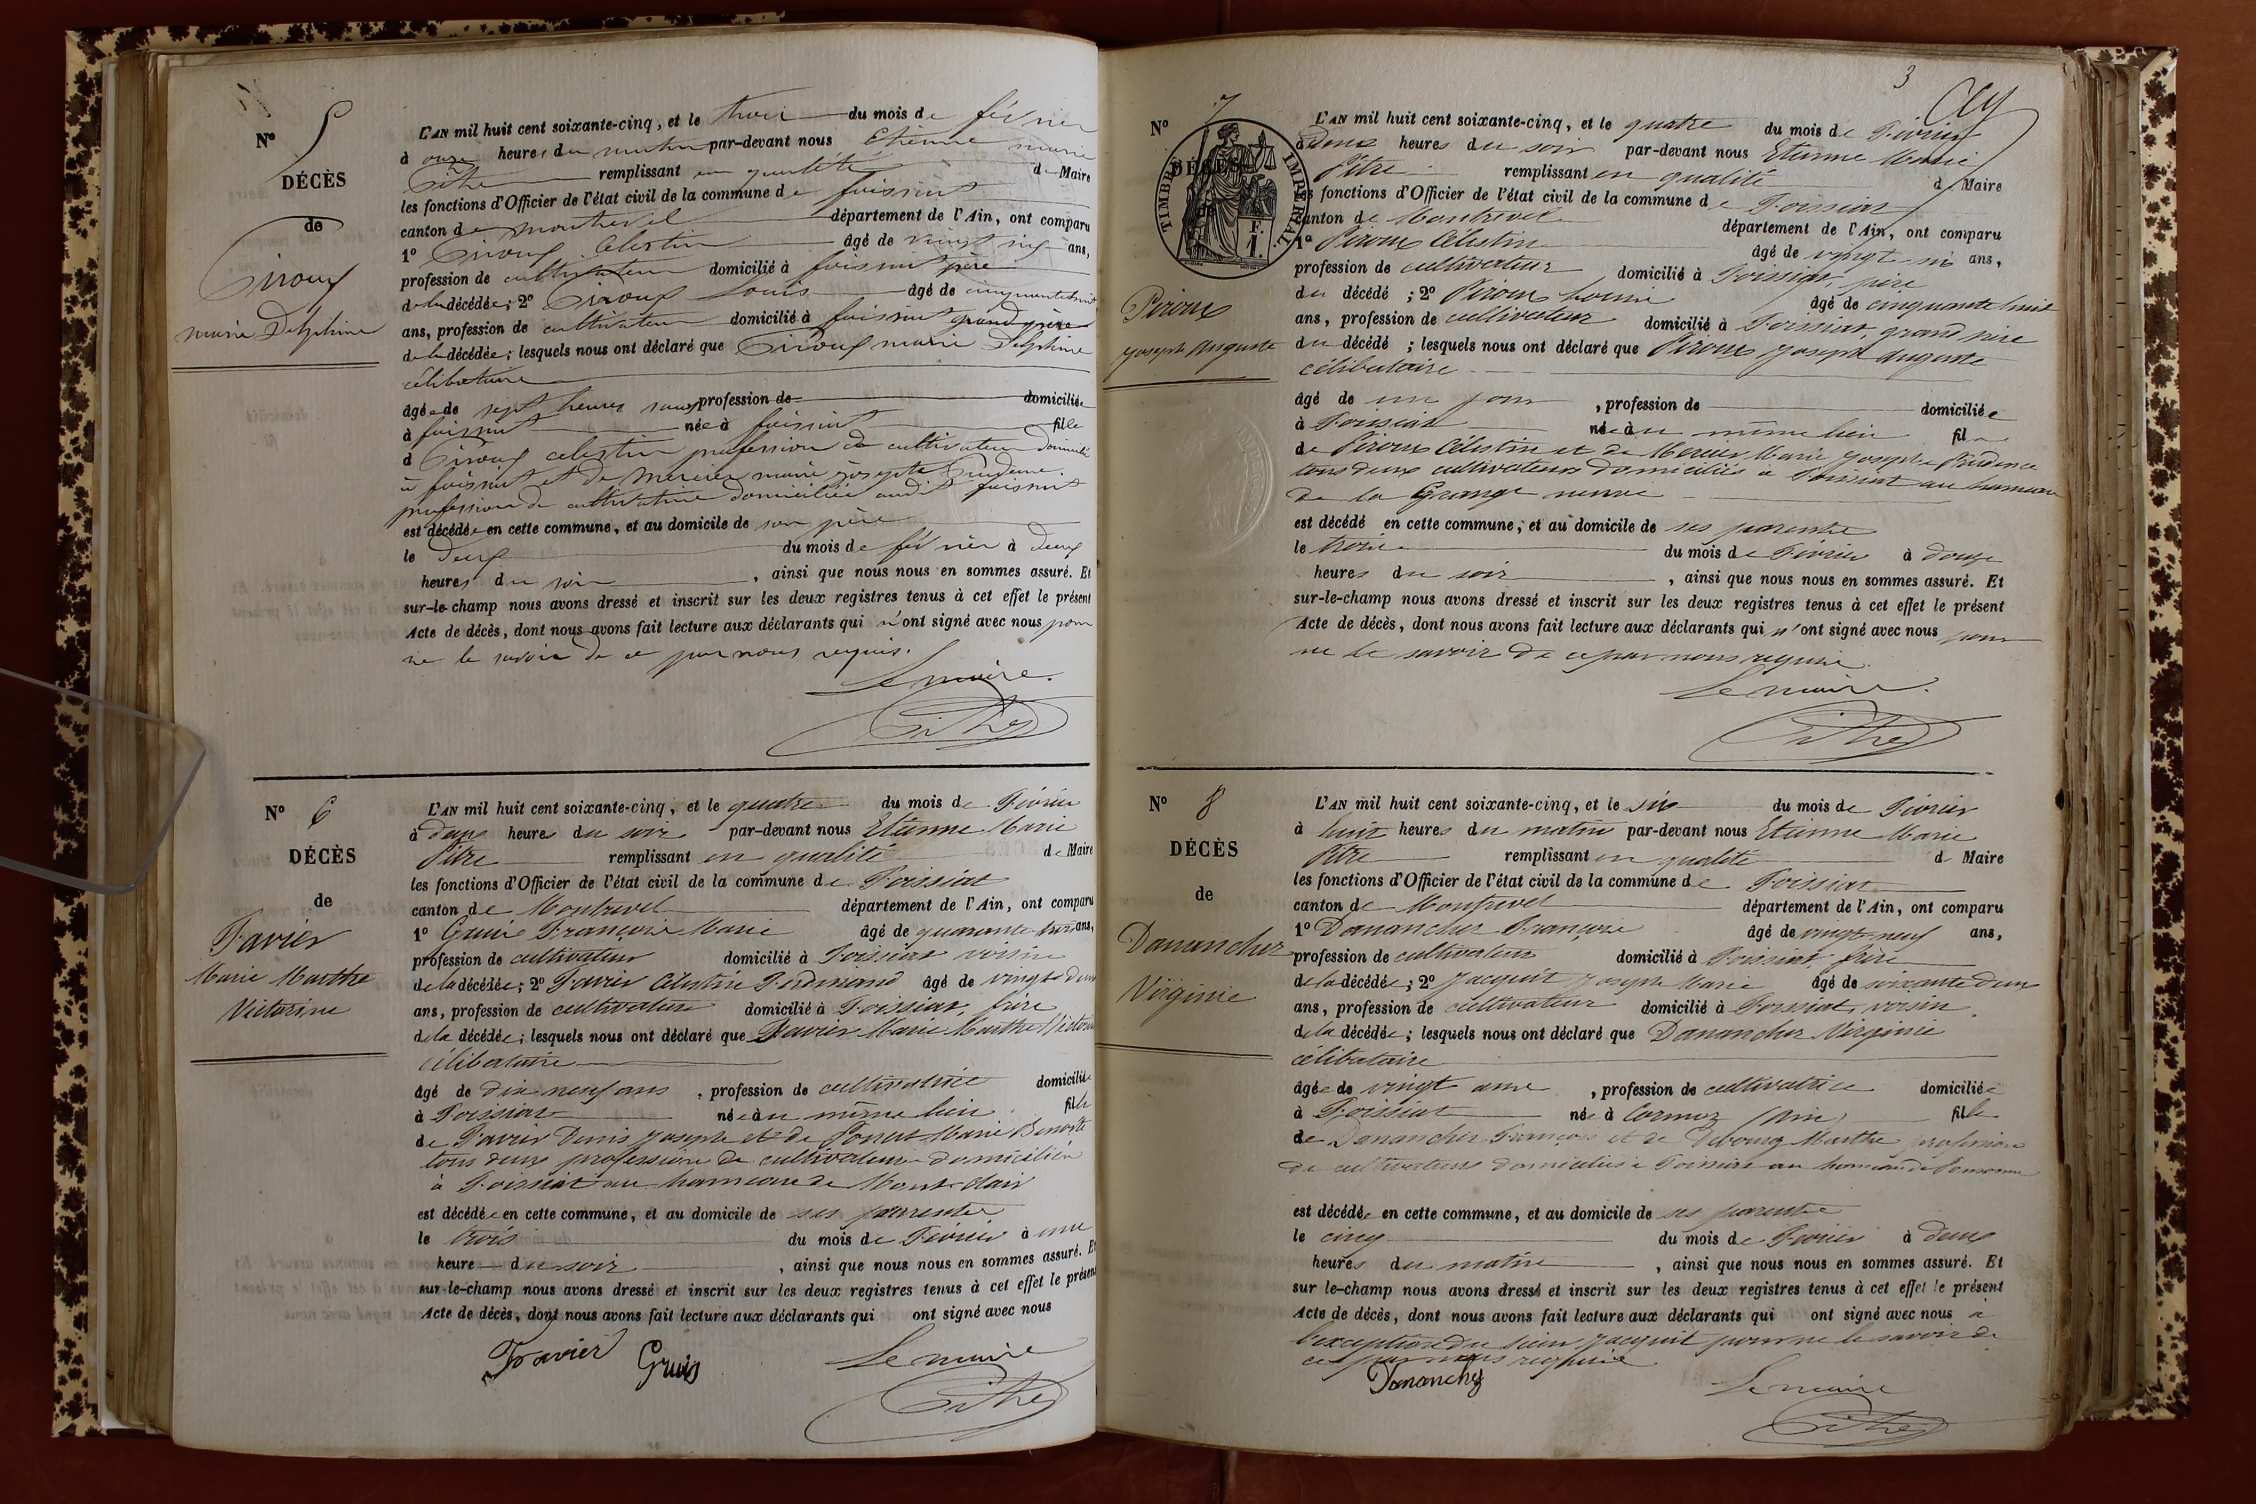 N° 5
DÉCÈS
de
Piroux
marie Delphine
L'AN mil huit cent soixante-cinq, et le trois du mois de février
à onze heures du matin par-devant nous Etienne marie
Pitre remplissant en qualité de Maire
les fonctions d'Officier de l'état civil de la commune de foissiat
canton de montrevel département de l'Ain, ont comparu
1° Piroux Celestin âgé de vingt six ans,
profession de cultivateur domicilié à foissiat père
de la décédée; 2° Piroux Louis âgé de cinquante huit
ans, profession de cultivateur domicilié à foissiat grand père
de la décédée; lesquels nous ont déclaré que Piroux marie Delphine
célibataire
âgée de sept heures sans profession de domiciliée
à foissiat née à foissiat fille
d Piroux celestin profession de cultivateur domicilié
à foissiat et de Mercier marie josephe Prudence
profession de cultivatrice domiciliée audit foissiat
est décédée en cette commune, et au domicile de son père
le Deux du mois de février à Deux
heures du soir, ainsi que nous nous en sommes assuré. Et
sur-le-champ nous avons dressé et inscrit sur les deux registres tenus à cet effet le présent
Acte de décès, dont nous avons fait lecture aux déclarants qui n'ont signé avec nous pour
ne le savoir de ce par nous requis.
Le maire.
Pitre
N° 6
DÉCÈS
de
Favier
Marie Marthe
Victorine
L'AN mil huit cent soixante-cinq, et le quatre du mois de Février
à deux heures du soir par-devant nous Etienne Marie
Pitre remplissant en qualité de Maire
les fonctions d'Officier de l'état civil de la commune de Foissiat
canton de Montrevel département de l'Ain, ont comparu
1° François Marie âgé de quarante trois ans,
profession de cultivateur domicilié à Foissiat voisin
de la décédée; 2° Favier Célestin Ferdinand âgé de vingt deux
ans, profession de cultivateur domicilié à Foissiat, frère
de la décédée; lesquels nous ont déclaré que Favier Marie Marthe Victorine
célibataire
âgé de dix neuf ans, profession de cultivatrice domiciliée
à Foissiat née au même lieu fille
de Favier Denis Joseph et de Marie Benoite
tous deux profession de cultivateurs domiciliés
à Foissiat au hameau de Mont-clair
est décédée en cette commune, et au domicile de ses parents
le trois du mois de Février à une
heure du soir, ainsi que nous nous en sommes assuré. Et
sur-le-champ nous avons dressé et inscrit sur les deux registres tenus à cet effet le présent
Acte de décès, dont nous avons fait lecture aux déclarants qui ont signé avec nous
Favier Le maire
Pitre
3
N° 7
DÉCÈS
de
TIMBRE IMPÉRIAL
F.
1.
Piroux
Joseph Auguste
L'AN mil huit cent soixante-cinq, et le quatre du mois de Février
à Deux heures du soir par-devant nous Etienne Marie
Pitre remplissant en qualité d Maire
les fonctions d'Officier de l'état civil de la commune de Foissiat
canton de Montrevel département de l'Ain, ont comparu
1° Piroux Célestin âgé de vingt-six ans,
profession de cultivateur domicilié à Foissiat, père
du décédé; 2° Piroux Louis âgé de cinquante huit
ans, profession de cultivateur domicilié à Foissiat, grand père
du décédé; lesquels nous ont déclaré que Piroux Joseph Auguste
célibataire
âgé de un jour, profession de domicilié
à Foissiat né au même lieu fil
de Piroux Célestin et de Mercier Marie Josephe Prudence
tous deux cultivateurs domiciliés à Foissiat au hameau
de la Grange neuve
est décédé en cette commune, et au domicile de ses parents
le trois du mois de Février à douze
heures du soir, ainsi que nous nous en sommes assuré. Et
sur-le-champ nous avons dressé et inscrit sur les deux registres tenus à cet effet le présent
Acte de décès, dont nous avons fait lecture aux déclarants qui n'ont signé avec nous pour
ne le savoir de ce par nous requis.
Le maire.
Pitre
N° 8
DÉCÈS
de
Danancher
Virginie
L'AN mil huit cent soixante-cinq, et le six du mois de Février
à huit heures du matin par-devant nous Etienne Marie
Pitre remplissant en qualité d Maire
les fonctions d'Officier de l'état civil de la commune de Foissiat
canton de Montrevel département de l'Ain, ont comparu
1° Danancher François âgé de vingt-neuf ans,
profession de cultivateur domicilié à Foissiat, frère
de la décédée; 2° Jacquit Joseph Marie âgé de soixante deux
ans, profession de cultivateur domicilié à Foissiat, voisin
de la décédée; lesquels nous ont déclaré que Danancher Virginie
célibataire
âgée de vingt ans, profession de cultivatrice domiciliée
à Foissiat née à Cormoz (Ain) fille
de Danancher François et de Debourg Marthe profession
de cultivateurs domiciliés à Foissiat au hameau de
est décédée en cette commune, et au domicile de ses parents
le cinq du mois de Février à deux
heures du matin, ainsi que nous nous en sommes assuré. Et
sur le-champ nous avons dressé et inscrit sur les deux registres tenus à cet effet le présent
Acte de décès, dont nous avons fait lecture aux déclarants qui ont signé avec nous à
l'exception du sieur Jacquit pour ne le savoir de
ce par nous requis
Dananche Le maire
Pitre